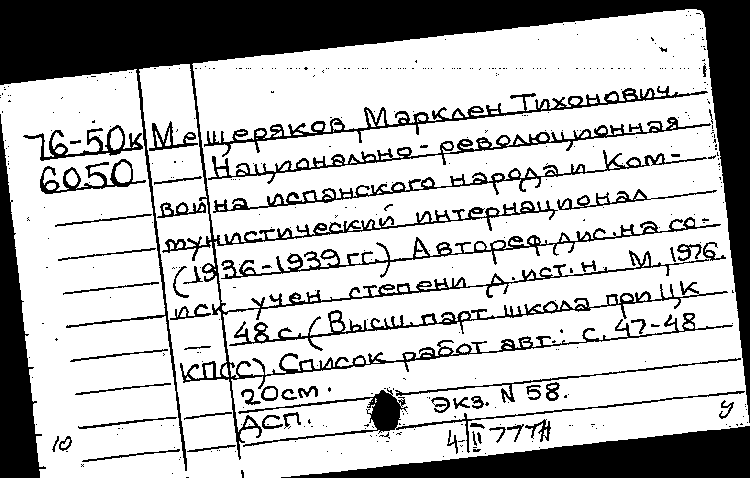 76-50к Мещеряков, Марклен Тихонович.
6050 Национально-революционная
война испанского народа и Ком-
мунистический интернационал
(1936-1939 гг.) Автореф. дис. на со-
иск. учен. степени д. ист. н. М., 1976.
48 с. (Высш. парт. школа при ЦК
КПСС). Список работ авт.: с. 47-48
20 см.
ДСП. Экз. N 58.
10 4/II 777 у